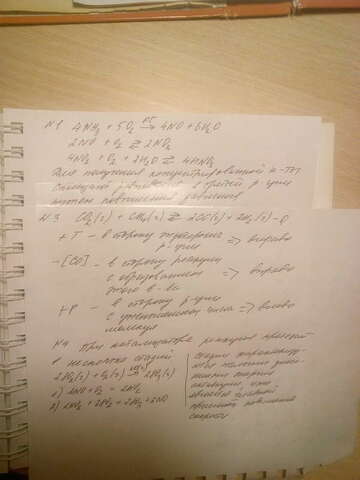 N1 4NH₃ + 5O₂ →Pt 4NO + 6H₂O
2NO + O₂ ⇄ 2NO₂
4NO₂ + O₂ + 2H₂O ⇄ 4HNO₃
Для получения концентрированной к-ты
смещают равновесие в третьей р-ции
путем повышения давления
N3 CO₂(г) + CH₄(г) ⇄ 2CO(г) + 2H₂(г) - Q
+T - в сторону
р-ции => вправо
-[CO] - в сторону реакции
с образованием => вправо
этого в-ва
+P - в сторону р-ции
с уменьшением числа => влево
молекул
N4 При катализаторе реакция протекает
в несколько стадий
2SO₂(г) + O₂(г) → 2SO₃(г)
1) 2NO + O₂ = 2NO₂
2) 2NO₂ + 2SO₂ = 2SO₃ + 2NO
энергии
активации, что
является
причиной повышения
скорости